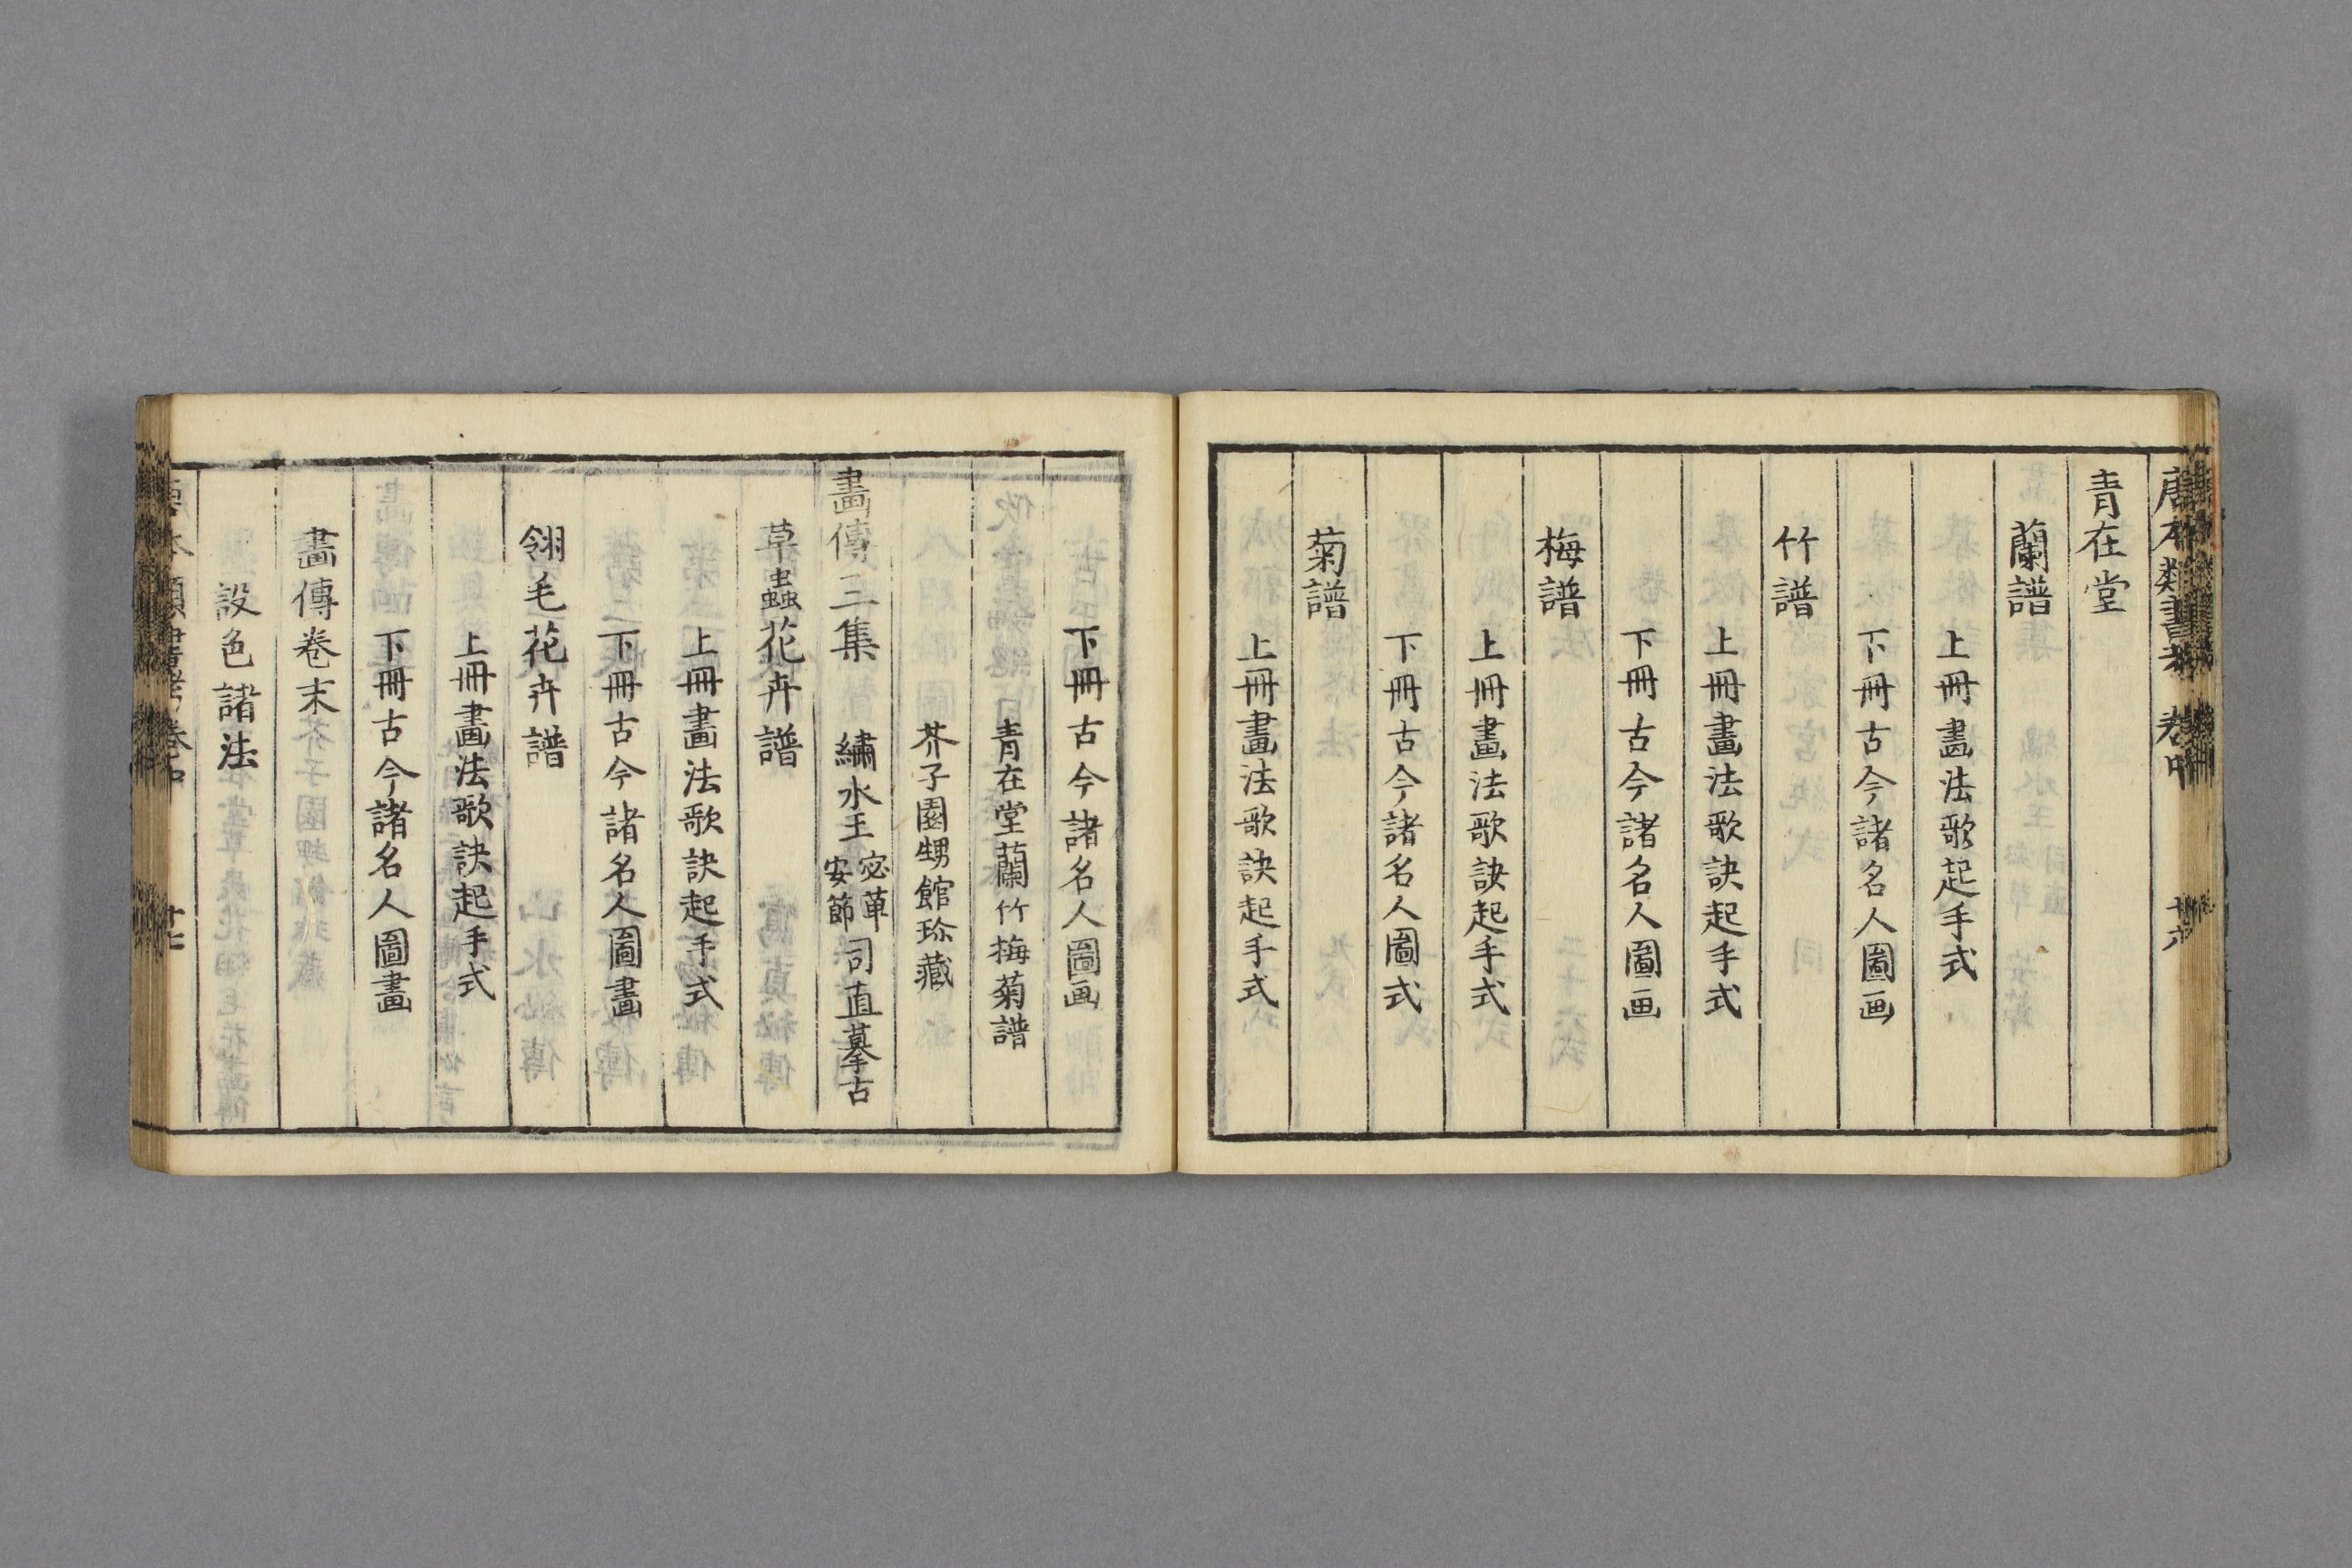 唐本類書考 卷中 廿六
青在堂
蘭譜
上冊畫法歌起手式
下冊古今諸名人圖画
竹譜
上冊畫法歌訣起手式
下冊古今諸名人圖画
梅譜
上冊畫法歌訣起手式
下冊古今諸名人圖式
菊譜
上冊畫法歌訣起手式
下冊古今諸名人圖画
青在堂蘭竹梅菊譜
芥子園甥館珍藏
畫傳三集 繡水王宓草安節司直摹古
草蟲花卉譜
上冊畫法歌訣起手式
下冊古今諸名人圖畫
翎毛花卉譜
上冊畫法歌訣起手式
下冊古今諸名人圖畫
畫傳卷末
設色諸法